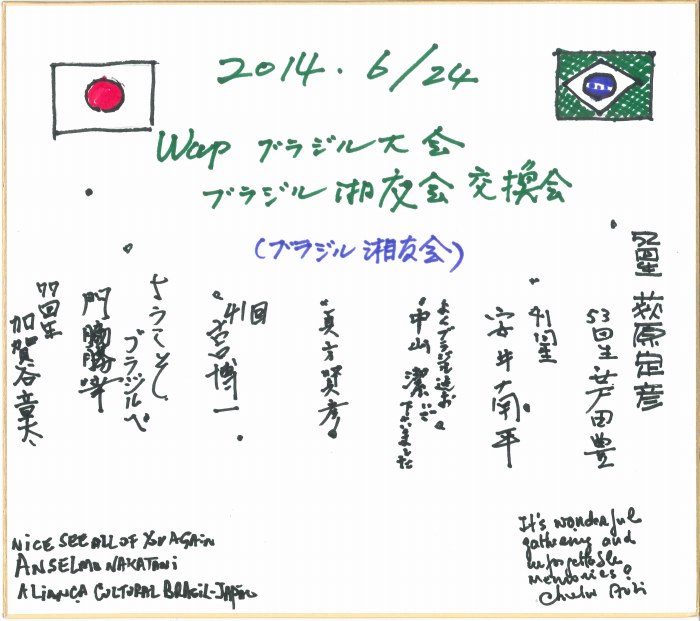 2014.6/24
Wap ブラジル大会
ブラジル湘友会 交換会
(ブラジル湘友会)
52回生 萩原定彦
53回生 芦田豊
41回生
安井南平
よくブラジル迄お
中山 潔
下さいました
真方賢孝
41回
宮博一
ようこそ
ブラジルへ
門脇勝幸
77回生
加賀谷章夫
NICE SEE ALL OF YOU AGAIN
ANSELMO NAKATANI
ALIANÇA CULTURAL BRASIL-JAPÃO
It's wonderful
gathering and
unforgettable
memories!